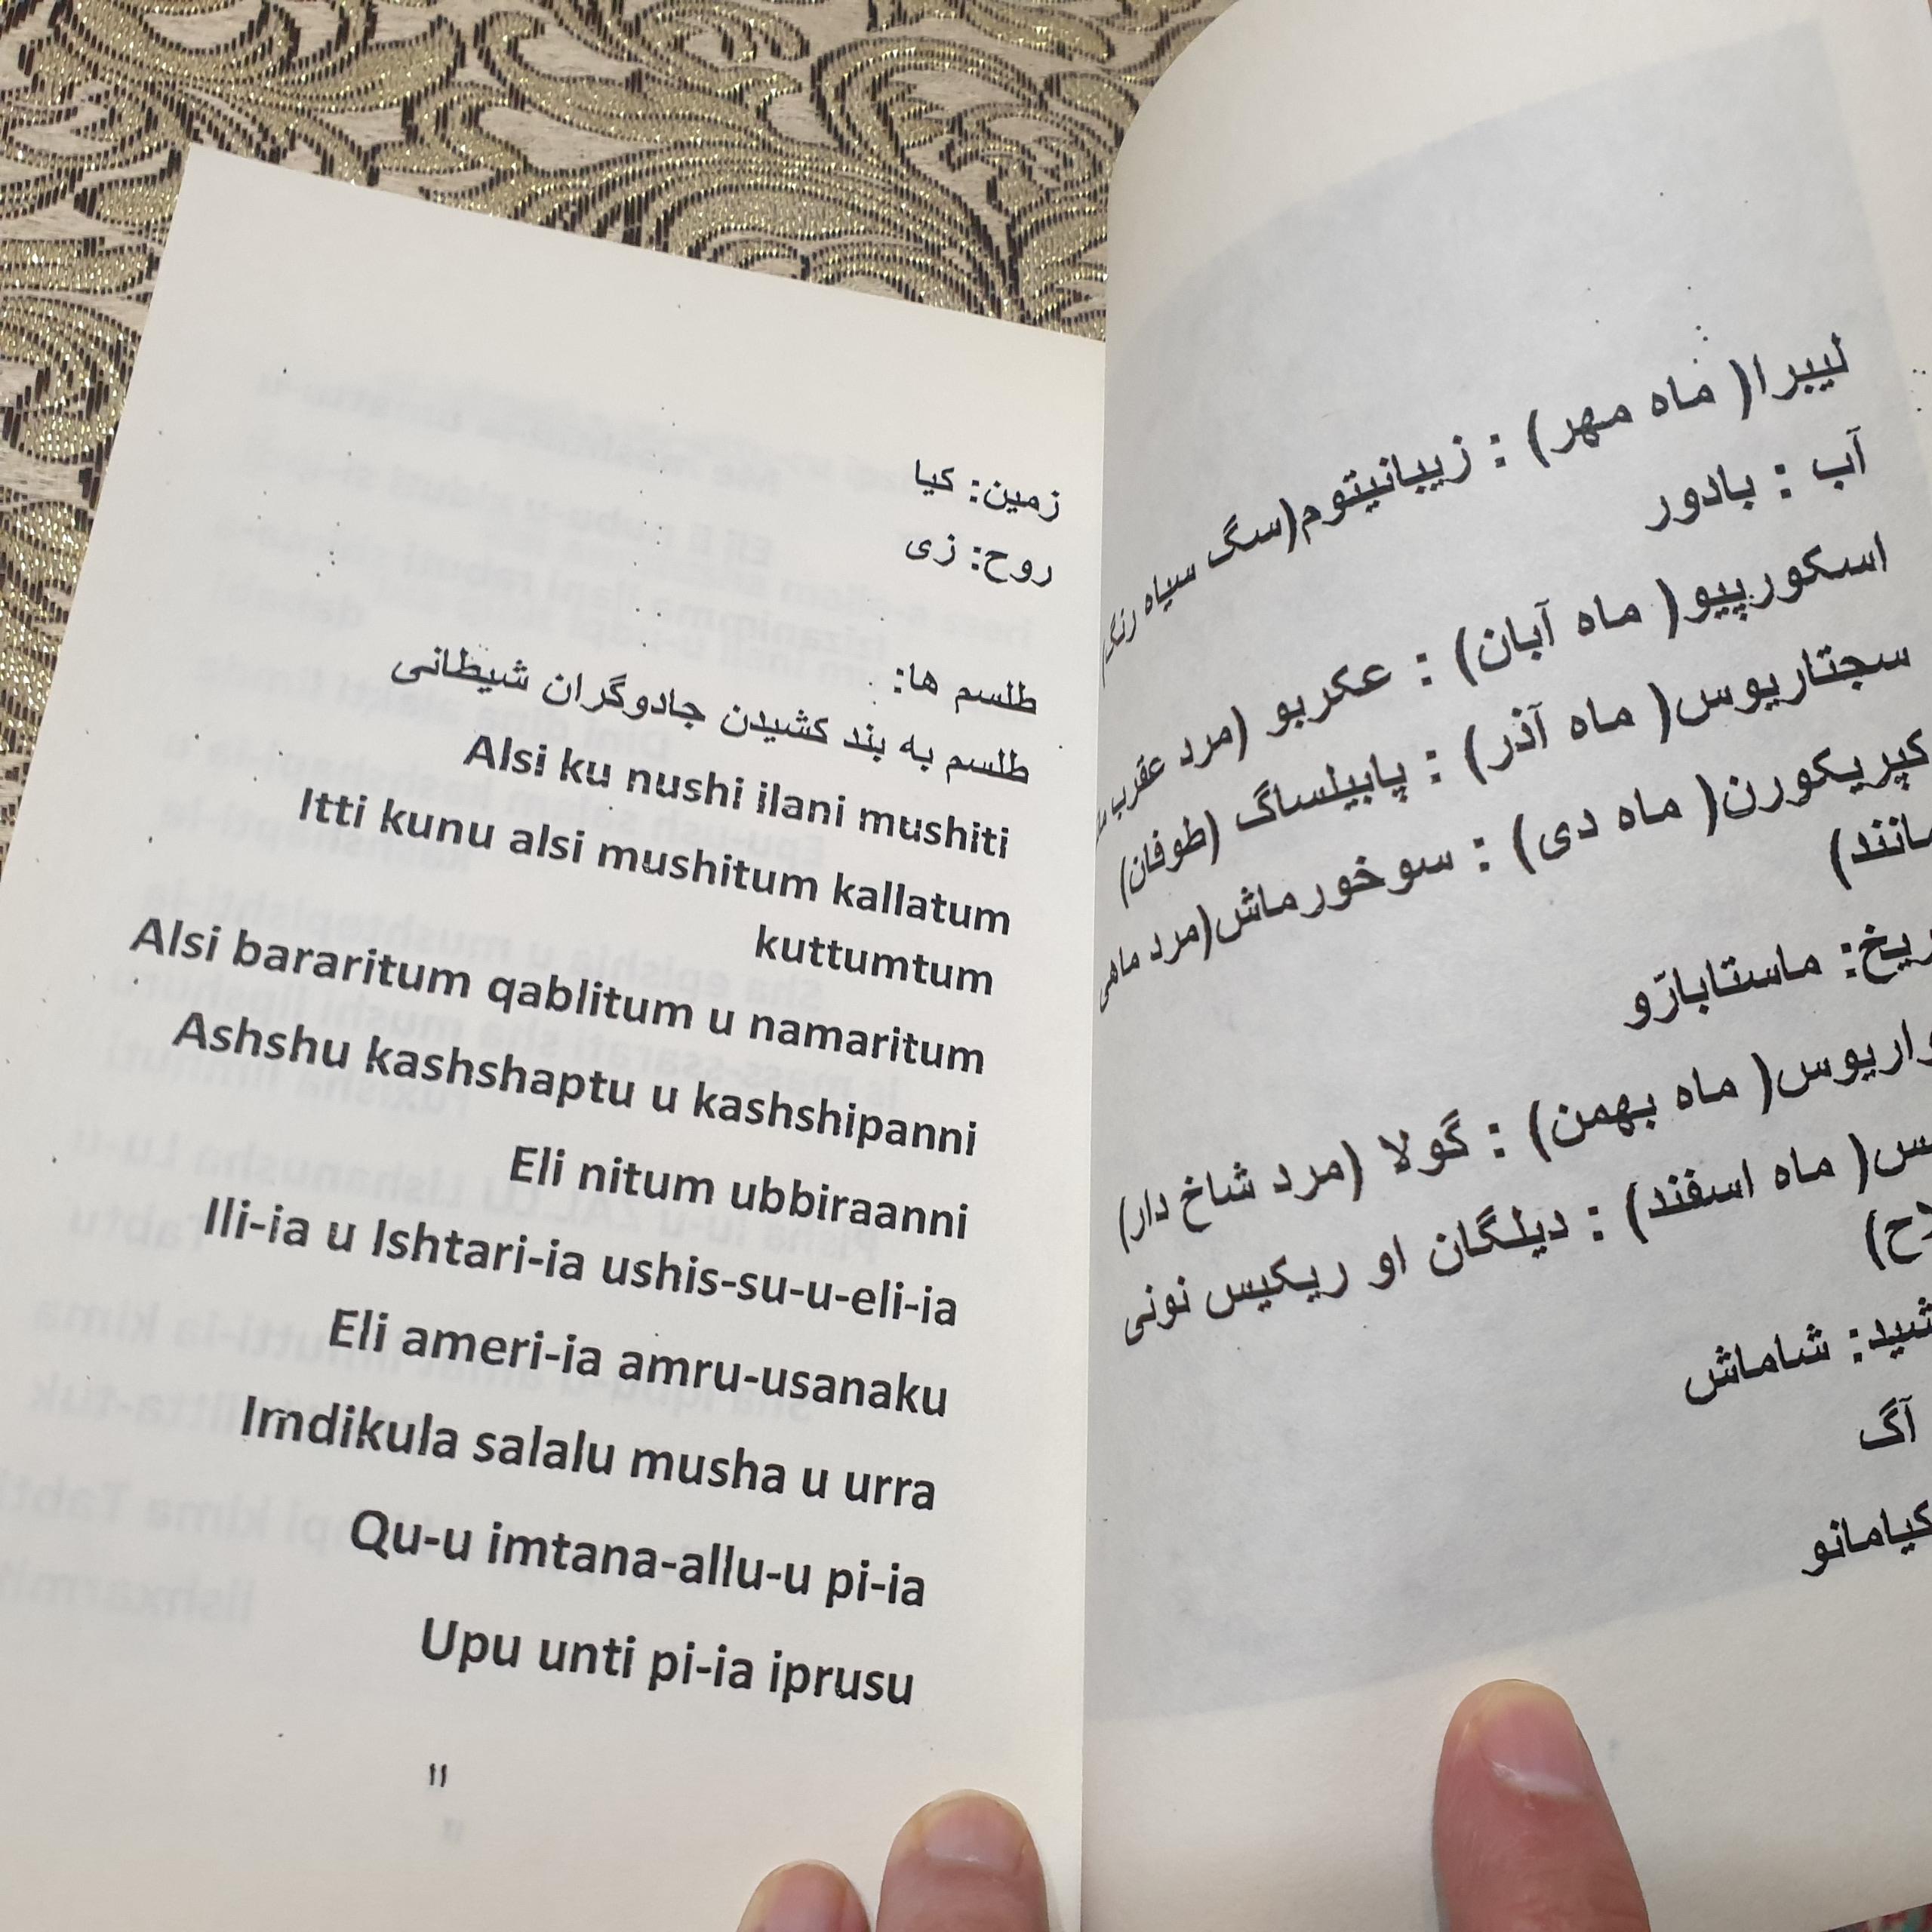 لیبرا( ماه مهر) : زیبانیتوم(سگ سیاه رنگ)
آب : بادور
اسکورپیو( ماه آبان) : عکربو (مرد عقرب
سجتاریوس( ماه آذر) : پابیلساگ (طوفان)
کپریکورن( ماه دی) : سوخورماش(مرد ماهی
مانند)
ماستابارّو
ماه بهمن) : گولا (مرد شاخ دار)
ماه اسفند) : دیلگان او ریکیس نونی
شاماش
آگ
کیامانو
زمین: کیا
روح: زی
طلسم ها:
طلسم به بند کشیدن جادوگران شیطانی
Alsi ku nushi ilani mushiti
Itti kunu alsi mushitum kallatum
kuttumtum
Alsi bararitum qablitum u namaritum
Ashshu kashshaptu u kashshipanni
Eli nitum ubbiraanni
Ili-ia u Ishtari-ia ushis-su-u-eli-ia
Eli ameri-ia amru-usanaku
Imdikula salalu musha u urra
Qu-u imtana-allu-u pi-ia
Upu unti pi-ia iprusu
۱۱